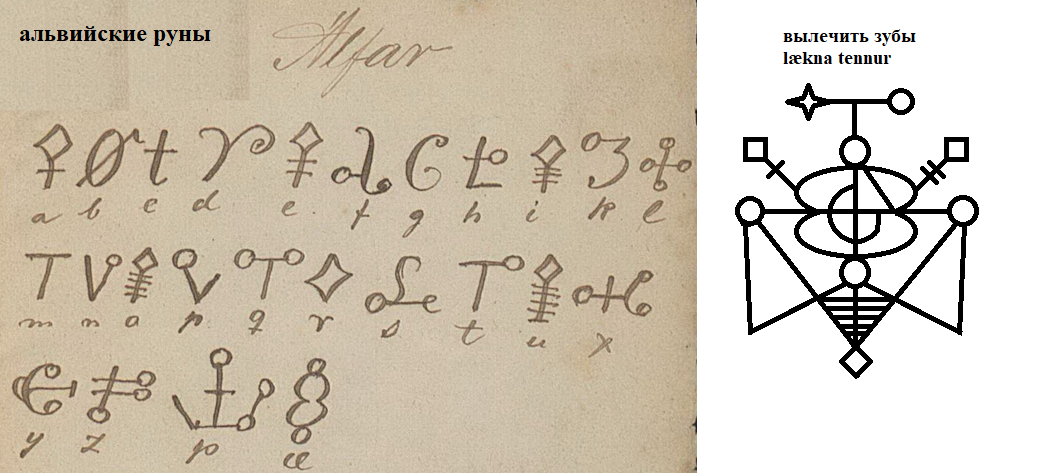 альвийские руны
Alfar
a b c d e f g h i k l
m n o p q r s t u x
y z þ æ
вылечить зубы
lækna tennur